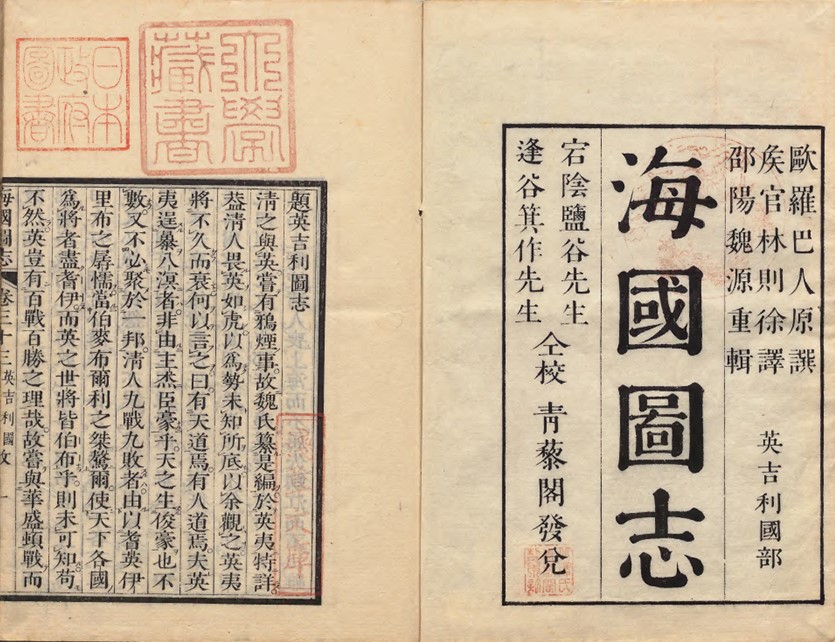 歐羅巴人原譔
矦官林則徐譯
邵陽魏源重輯
英吉利國部
海國圖志
宕陰鹽谷先生
逢谷箕作先生
仝校
青藜閣發兌
大學
藏書
日本
政府
圖書
題英吉利圖志
清之與英嘗有鴉煙事故魏氏纂是編於英夷特詳
葢清人畏英如虎以爲勢未知所底以余觀之英夷
將不久而衰何以言之曰有天道焉有人道焉夫英
夷逞暴八溟者非由主杰臣豪乎天之生俊豪也不
數又不必聚於一邦清人九戰九敗者由以耆英伊
里布之孱懦當伯麥布爾利之桀驁爾使天下各國
爲將者盡耆伊而英之世將皆伯布乎則未可知苟
不然英豈有百戰百勝之理哉故嘗與華盛頓戰而
海國圖志 卷三十三 英吉利國 一